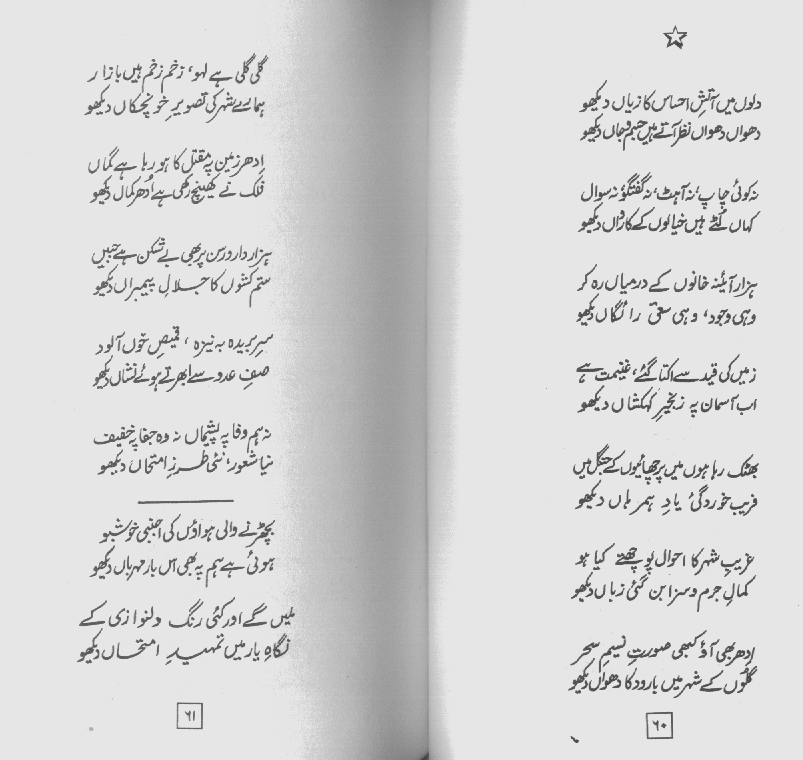 دلوں میں آتشِ احساس کا زیاں دیکھو
دھواں دھواں نظر آتے ہیں جسم و جاں دیکھو
نہ کوئی چاپ، نہ آہٹ، نہ گفتگو، نہ سوال
کہاں لُٹے ہیں خیالوں کے کارواں دیکھو
ہزار آئینہ خانوں کے درمیاں رہ کر
وہی وجود، وہی سعیٔ رائگاں دیکھو
زمیں کی قید سے اکتا گئے، غنیمت ہے
اب آسمان پہ زنجیرِ کہکشاں دیکھو
بھٹک رہا ہوں میں پرچھائیوں کے جنگل میں
فریب خوردگیٔ یادِ ہمرہاں دیکھو
غریبِ شہر کا احوال پوچھتے کیا ہو
کمالِ جرم و سزا بن گئی زباں دیکھو
اِدھر بھی آؤ کبھی صورتِ نسیمِ سحر
گلوں کے شہر میں بارود کا دھواں دیکھو
۶۰
گلی گلی ہے لہو، زخم زخم ہیں بازار
ہمارے شہر کی تصویرِ خونچکاں دیکھو
اِدھر زمین پہ مقتل کا ہو رہا ہے گماں
فلک نے کھینچ رکھی ہے اُدھر کماں دیکھو
ہزار دار و رسن پر بھی بے شکن ہے جبیں
ستم کشوں کا جلالِ پیمبراں دیکھو
سرِ بریدہ بہ نیزہ، قمیصِ خوں آلود
صفِ عدو سے ابھرتے ہوئے نشاں دیکھو
نہ ہم وفا پہ پشیماں نہ وہ جفا پہ خفیف
نیا شعور، نئی طرزِ امتحاں دیکھو
بچھڑنے والی ہواؤں کی اجنبی خوشبو
ہوئی ہے ہم پہ بھی اس بار مہرباں دیکھو
ملیں گے اور کئی رنگ دلنوازی کے
نگاہِ یار میں تمہیدِ امتحاں دیکھو
۶۱